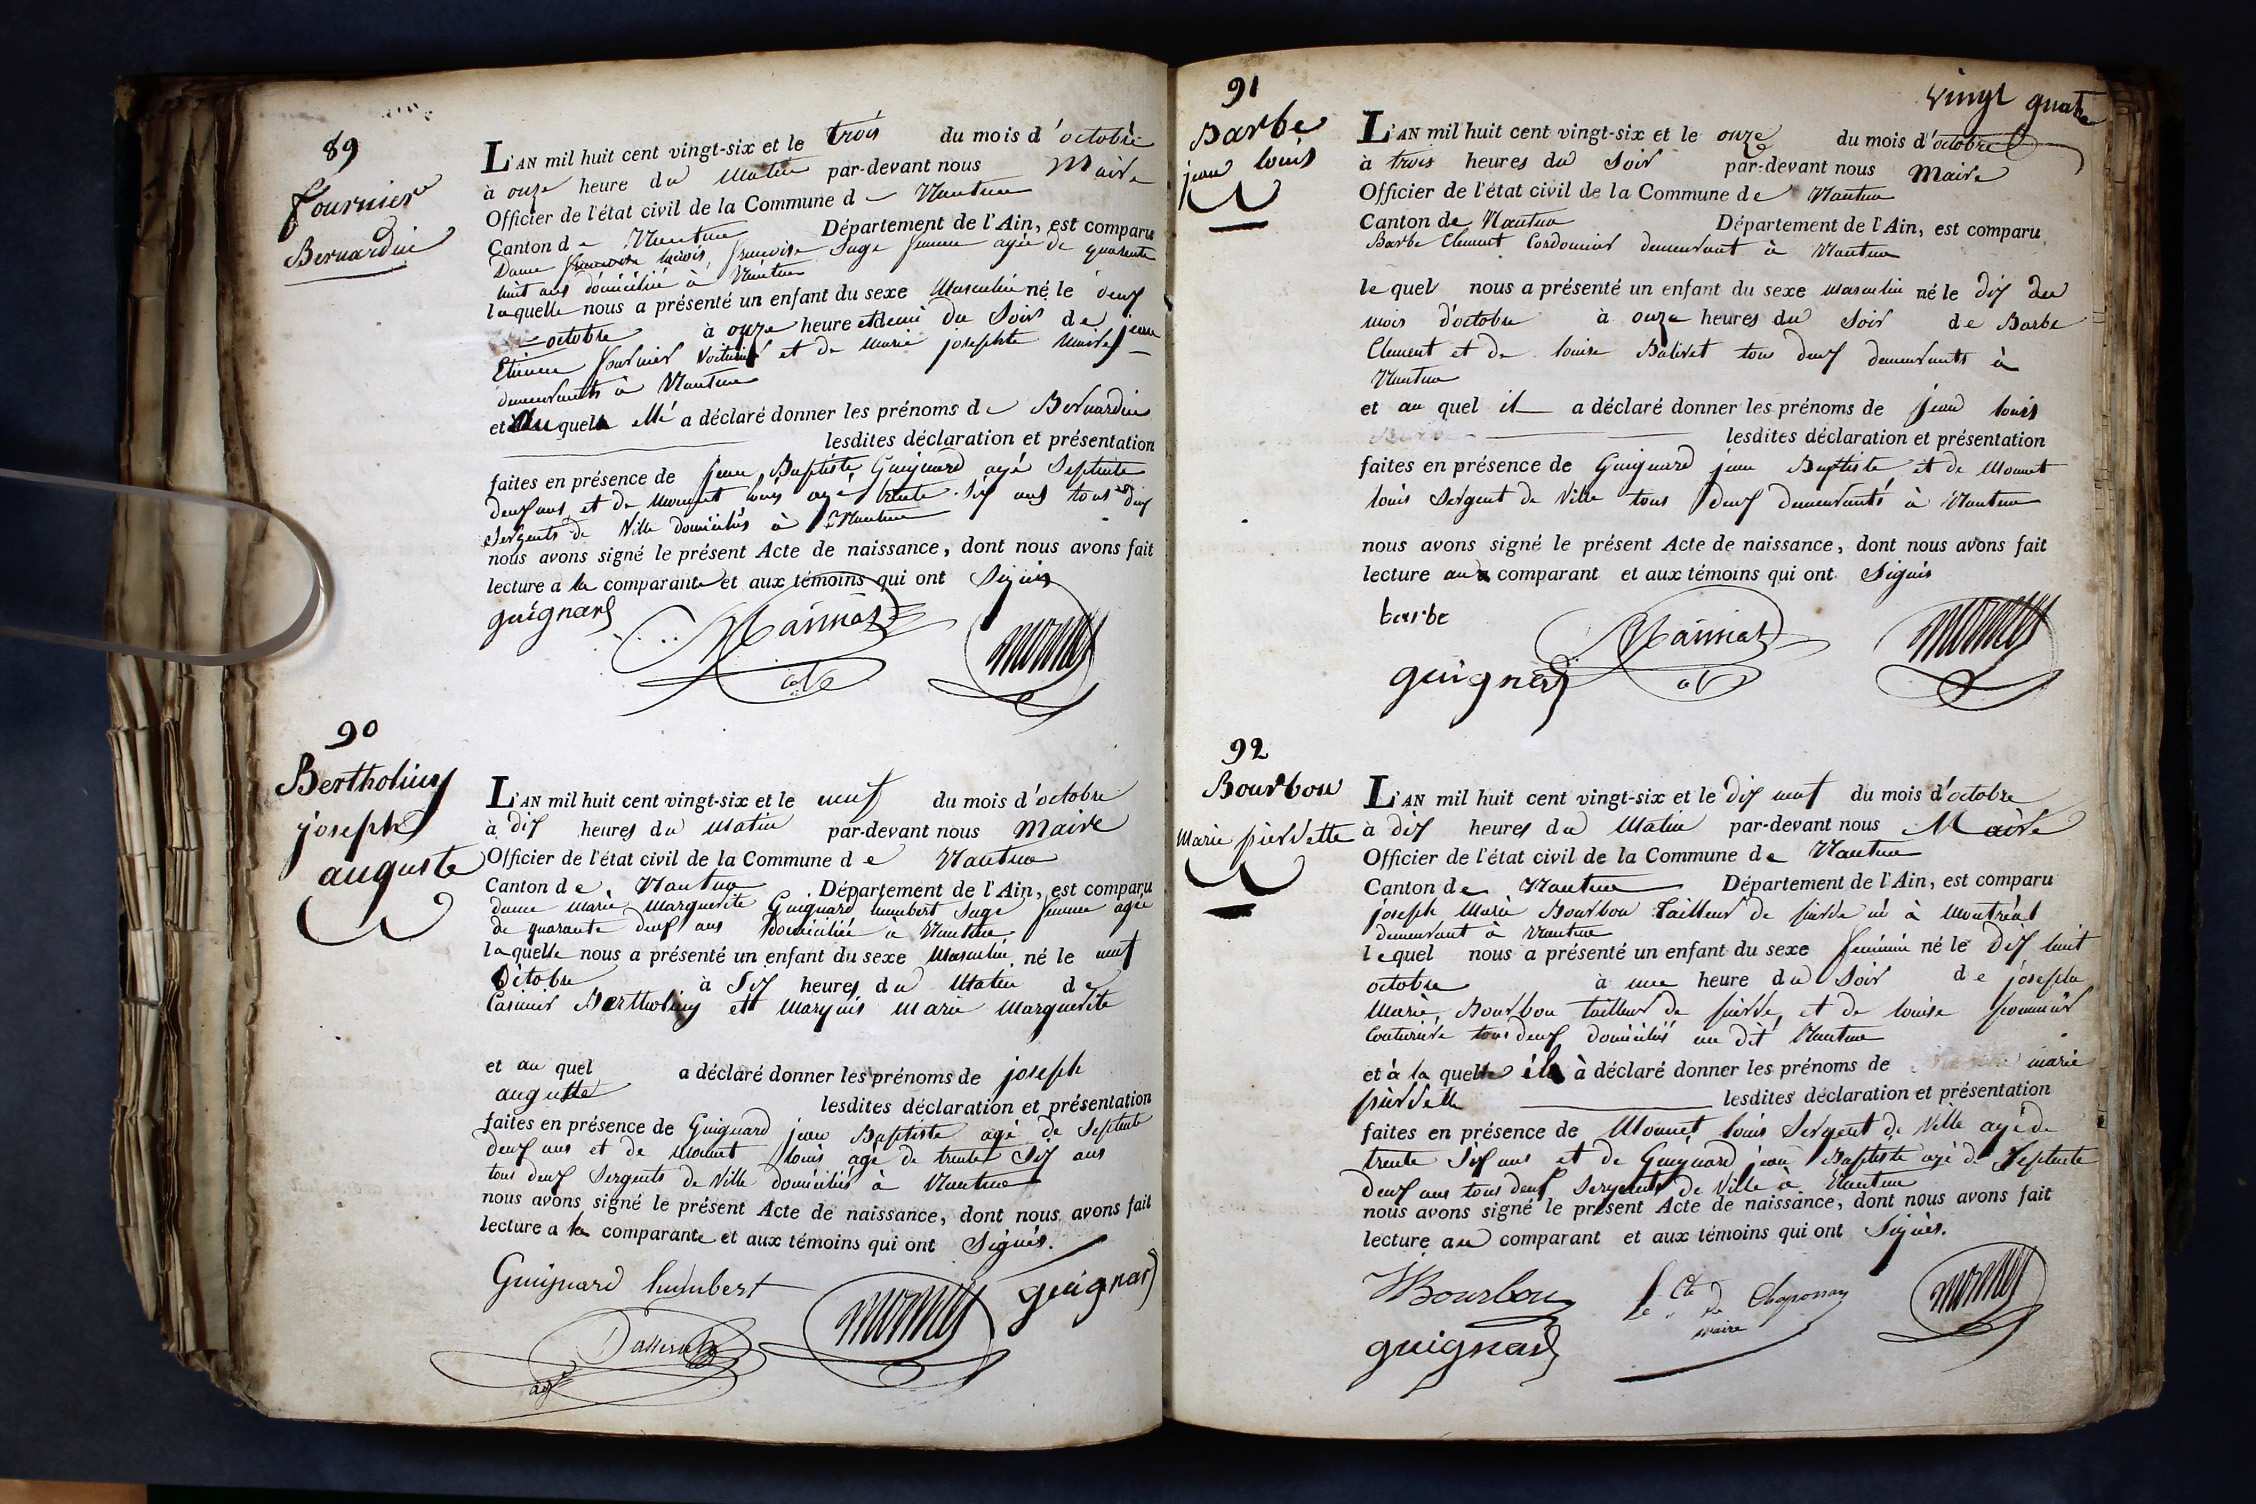 89
fournier
Bernardin
L'AN mil huit cent vingt-six et le trois du mois d'octobre
à onze heure du Matin par-devant nous Maire
Officier de l'état civil de la Commune de Nantua
Canton de Nantua Département de l'Ain, est comparu
Dame françoise Sage femme agée de quarante
huit ans domiciliée à Nantua
laquelle nous a présenté un enfant du sexe Masculin né le deux
octobre à onze heure et demi du Soir de jean
Etienne fournier Voiturier et de marie josephte Maire
demeurants à Nantua
et Au quel elle a déclaré donner les prénoms de Bernardin
lesdites déclaration et présentation
faites en présence de jean Baptiste Guignard agé Septente
deux ans et de monnet louis agé trente six ans tous deux
Sergents de Ville domiciliés à Nantua
nous avons signé le présent Acte de naissance, dont nous avons fait
lecture a la comparante et aux témoins qui ont Signés
guignard
90
Bertholiny
joseph
auguste
L'AN mil huit cent vingt-six et le neuf du mois d'octobre
à dix heures du Matin par-devant nous Maire
Officier de l'état civil de la Commune de Nantua
Canton de Nantua Département de l'Ain, est comparu
dame marie Marguerite Guignard humbert Sage femme agée
de quarante deux ans domiciliée a Nantua
laquelle nous a présenté un enfant du sexe Masculin né le neuf
Octobre à Six heures du Matin de
Casimir Bertholiny et Marquis Marie Marguerite
et au quel a déclaré donner les prénoms de joseph
auguste lesdites déclaration et présentation
faites en présence de Guignard jean Baptiste agé de Septente
deux ans et de Monnet louis agé de trente Six ans
tous deux Sergents de Ville domiciliés à Nantua
nous avons signé le présent Acte de naissance, dont nous avons fait
lecture a la comparante et aux témoins qui ont Signés.
Guignard humbert
guignard
vingt quatre
91
Barbe
jean louis
L'AN mil huit cent vingt-six et le onze du mois d'octobre
à trois heures du Soir par-devant nous Maire
Officier de l'état civil de la Commune de Nantua
Canton de Nantua Département de l'Ain, est comparu
Barbe Clement Cordonnier demeurant à Nantua
le quel nous a présenté un enfant du sexe masculin né le dix du
mois d'octobre à onze heures du Soir de Barbe
Clement et de louise Balivet tous deux demeurants à
Nantua
et au quel il a déclaré donner les prénoms de jean louis
lesdites déclaration et présentation
faites en présence de Guignard jean Baptiste et de Monnet
louis Sergent de Ville tous deux demeurants à Nantua
nous avons signé le présent Acte de naissance, dont nous avons fait
lecture au comparant et aux témoins qui ont Signés
barbe
guignard
92
Bourbon
Marie pierrette
L'AN mil huit cent vingt-six et le dix neuf du mois d'octobre
à dix heures du Matin par-devant nous Maire
Officier de l'état civil de la Commune de Nantua
Canton de Nantua Département de l'Ain, est comparu
joseph Marie Bourbon tailleur de pierre né à Montréal
demeurant à Nantua
lequel nous a présenté un enfant du sexe feminin né le Dix huit
octobre à une heure du Soir de joseph
Marie Bourbon tailleur de pierre, et de louise
Couturière tous deux domiciliés au dit Nantua
et à la quelle il à déclaré donner les prénoms de marie
pierrette lesdites déclaration et présentation
faites en présence de Monnet louis Sergent de Ville agé de
trente Six ans et de Guignard jean Baptiste agé de Septente
deux ans tous deux Sergents de Ville à Nantua
nous avons signé le présent Acte de naissance, dont nous avons fait
lecture au comparant et aux témoins qui ont Signés.
Bourbon
le Cte de Chaponnay
maire
guignard